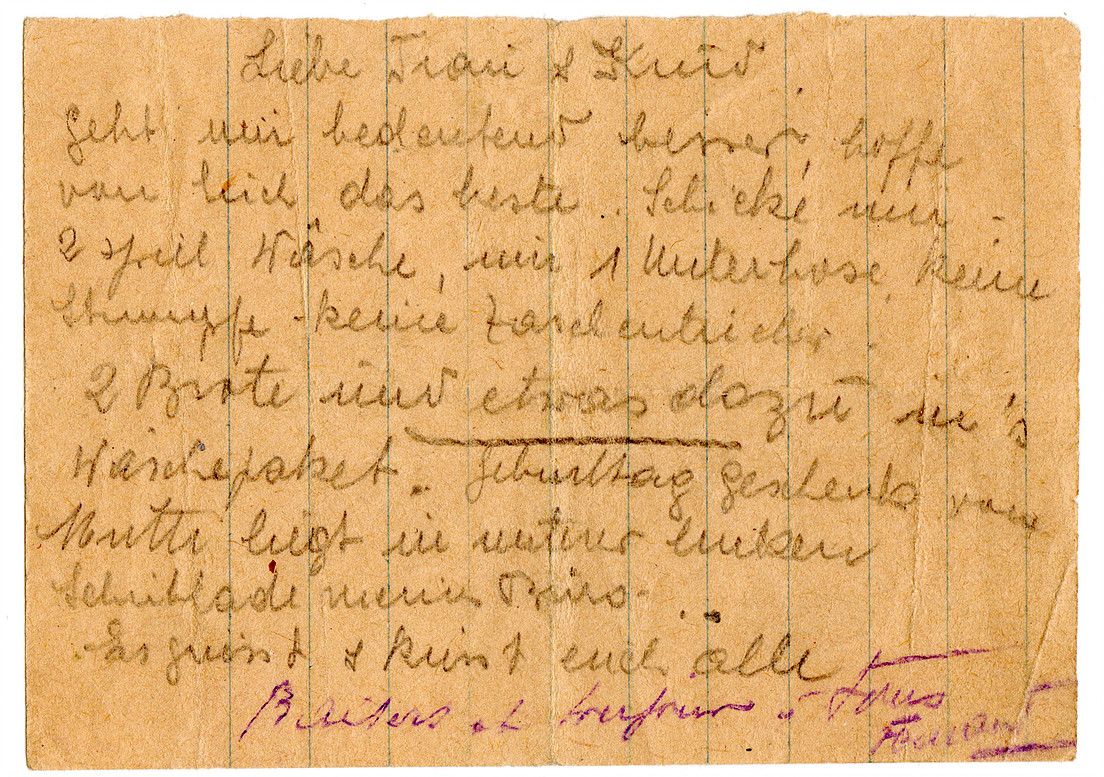 Liebe Frau & Kind
Geht mir bedeutend besser, hoffe
von Euch das beste. Schicke mir -
2 Wäsche, nur 1 Unterhose, keine
Strümpfe - keine Taschentücher.
2 Brote und etwas dazu in's
Wäschepaket. Geburttag Geschenk von
Mutti liegt in unterer linken
Schublade meines Büro.
Es grüsst & küsst euch alle
Baisers et toujours à Tous